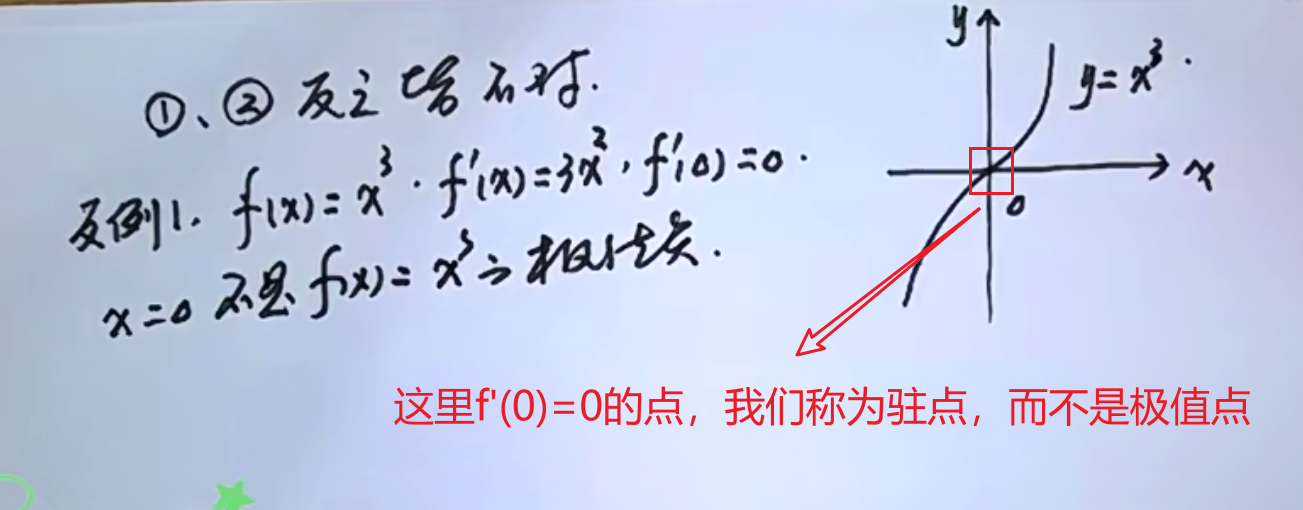 ①、② 反之皆不对.
反例1. f(x)=x³. f'(x)=3x², f'(0)=0.
x=0 不是 f(x)=x³之极值点.
y
y=x³.
x
0
这里f'(0)=0的点，我们称为驻点，而不是极值点